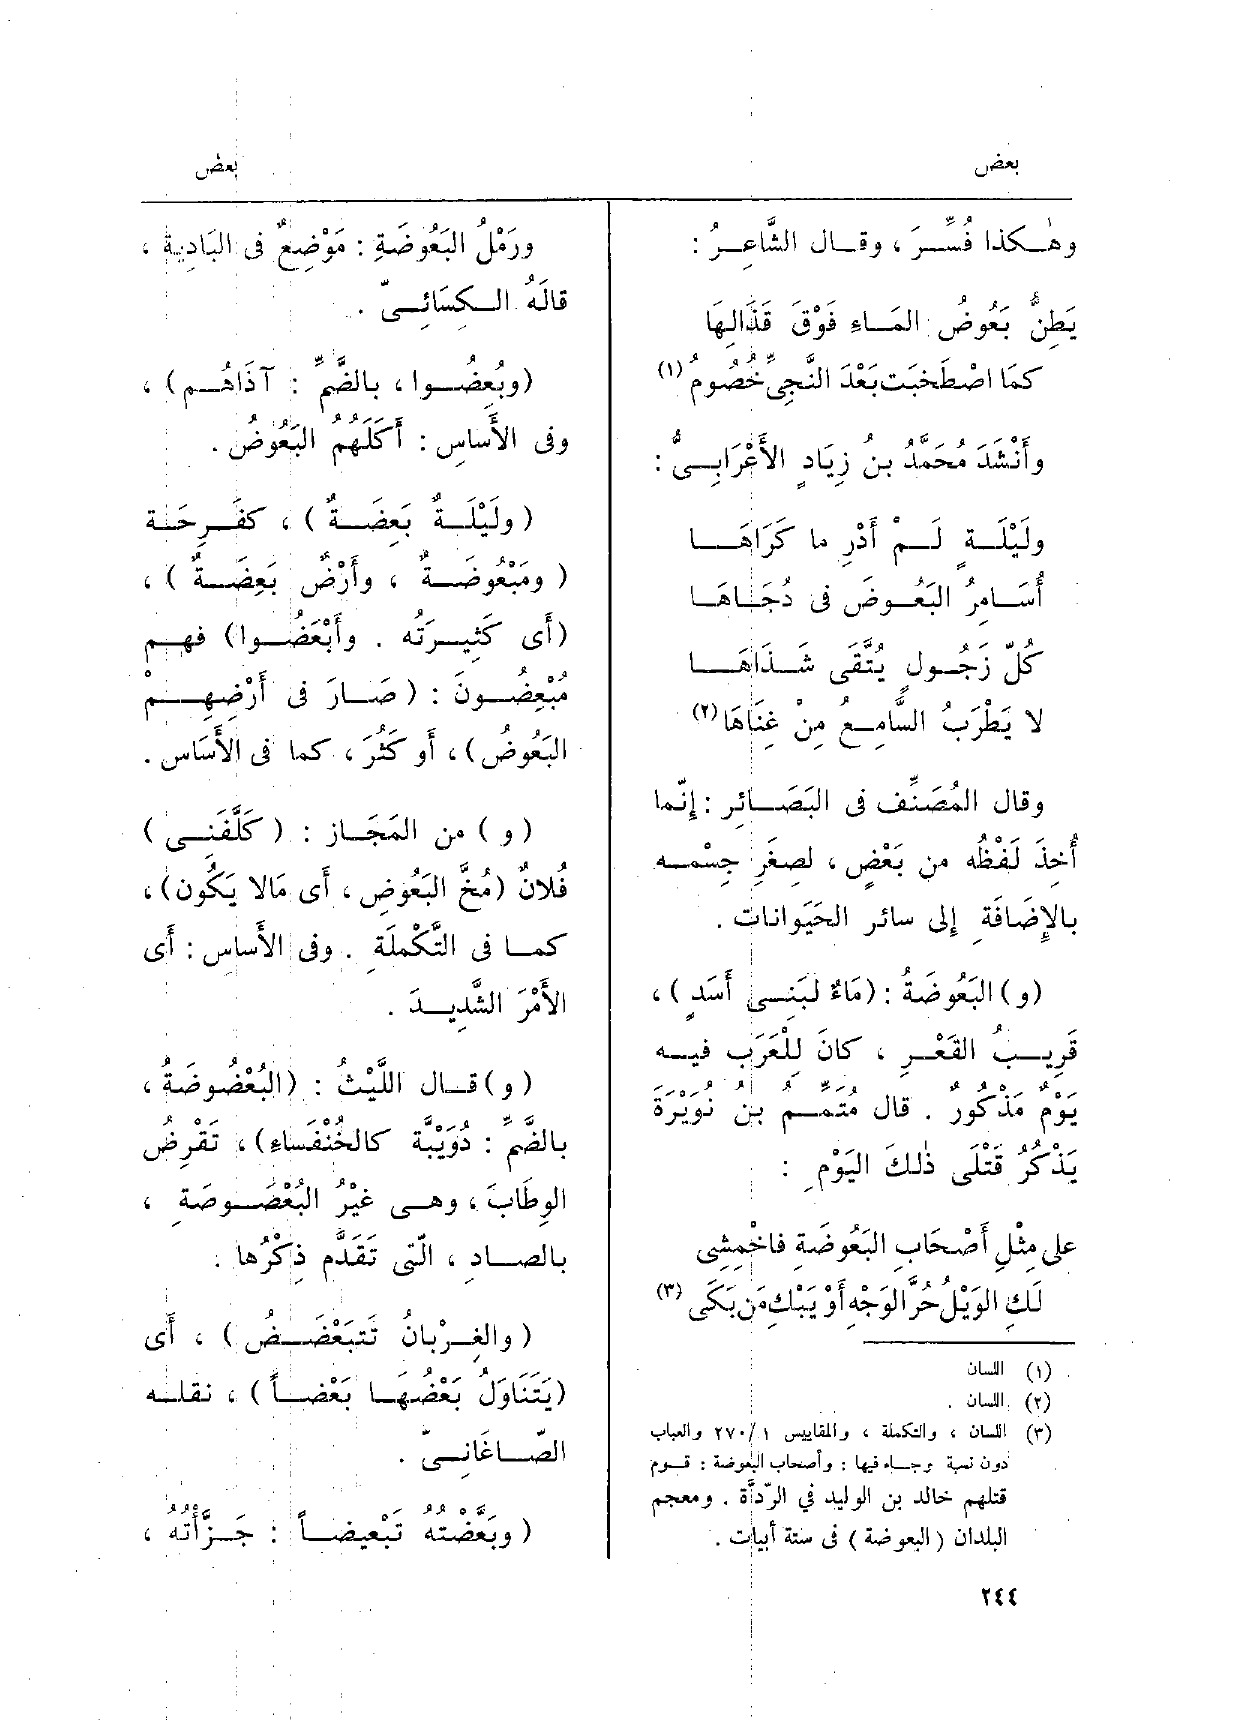 بعض
بعض
وهٰكذا فُسِّرَ ، وقال الشَّاعِرُ :
يَطِنُّ بَعُوضُ المَاءِ فَوْقَ قَذَالِهَا
كمَا اصْطَخَبَت بَعْدَ النَّجِىِّ خُصُومُ (١)
وأَنْشَدَ مُحَمَّدُ بنُ زِيَادٍ الأَعْرَابِىُّ :
ولَيْلَةٍ لَمْ أَدْرِ ما كَرَاهَا
أُسَامِرُ البَعُوضَ فى دُجَاهَا
كُلّ زَجُولٍ يُتَّقَى شَذَاهَا
لا يَطْرَبُ السَّامِعُ مِنْ غِنَاهَا (٢)
وقال المُصَنِّف فى البَصَائِرِ : إِنَّما
أُخِذَ لَفْظُه من بَعْضٍ ، لصِغَرِ جِسْمِه
بالإِضَافَةِ إِلى سائر الحَيَوانات .
(و) البَعُوضَةُ : (مَاءٌ لبَنِى أَسَدٍ) ،
قَرِيبُ القَعْرِ ، كانَ لِلْعَرَب فيه
يَوْمٌ مَذْكُورٌ . قال مُتَمِّمُ بنُ نُوَيْرَةَ
يَذْكُرُ قَتْلَى ذٰلكَ اليَوْمِ :
على مِثْلِ أَصْحَابِ البَعُوضَةِ فاخْمِشِى
لَكِ الوَيْلُ حُرَّ الوَجْهِ أَوْ يَبْكِ مَن بَكَى (٣)
(١) اللسان .
(٢) اللسان .
(٣) اللسان ، والتكملة ، والمقاييس ١/ ٢٧٠ والعباب
دون نسبة وجاء فيها : وأصحاب البعوضة : قوم
قتلهم خالد بن الوليد في الرّدأة . ومعجم
البلدان (البعوضة) فى ستة أبيات .
٢٤٤
ورَمْلُ البَعُوضَةِ : مَوْضِعٌ فى البَادِيةُ ،
قالَهُ الكِسَائِىّ .
(وبُعِضُوا ، بالضَّمِّ : آذَاهُم) ،
وفى الأَساسِ : أَكَلَهُمُ البَعُوضُ .
(ولَيْلَةٌ بَعِضَةٌ) ، كفَرِحَة
(ومَبْعُوضَةٌ ، وأَرْضٌ بَعِضَةٌ) ،
(أَى كَثِيرَتُه . وأَبْعَضُوا) فهم
مُبْعِضُونَ : (صَارَ فى أَرْضِهِمْ
البَعُوضُ) ، أَو كَثُرَ ، كما فى الأَسَاس .
(و) من المَجَاز : (كَلَّفَنِى)
فُلانٌ (مُخَّ البَعُوضِ ، أَى مَالا يَكُون) ،
كما فى التَّكْمِلَةِ . وفى الأَساس : أَى
الأَمْرَ الشَّدِيدَ .
(و) قال اللَّيْثُ : (البُعْضُوضَةُ ،
بالضَّمِّ : دُوَيْبَّة كالخُنْفَساءِ) ، تَقْرِضُ
الوِطَابَ ، وهى غَيْرُ البُعْصُوصَةِ ،
بالصادِ ، الَّتى تَقَدَّم ذِكْرُها .
(والغِرْبانُ تَتَبَعْضَضُ) ، أَى
(يَتَنَاوَلُ بَعْضُهَا بَعْضاً) ، نقله
الصّاغَانِىّ .
(وبَعَّضْتُه تَبْعِيضاً : جَزَّأْتُهُ ،